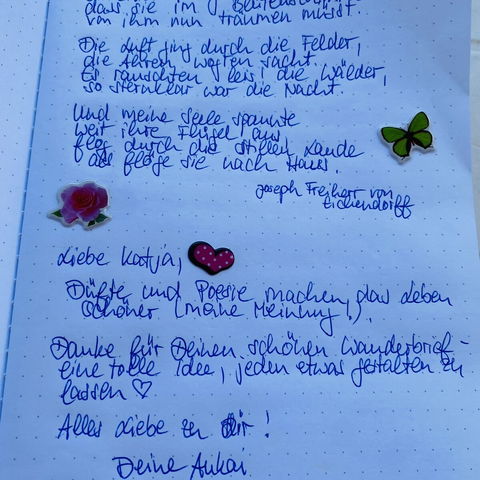 dass sie im Blütenschi
von ihm nun träumen müsst.
Die Luft ging durch die Felder,
die Ähren wogten sacht.
Es rauschten leis' die Wälder,
so sternklar war die Nacht.
Und meine Seele spannte
weit ihre Flügel aus
flog durch die stillen Lande
als flöge sie nach Haus.
Joseph Freiherr von
Eichendorff
Liebe Katja,
Düfte und Poesie machen das Leben
schöner (meine Meinung!).
Danke für Deinen schönen Wanderbrief -
eine tolle Idee, jeden etwas gestalten zu
lassen ♡
Alles Liebe zu Dir!
Deine